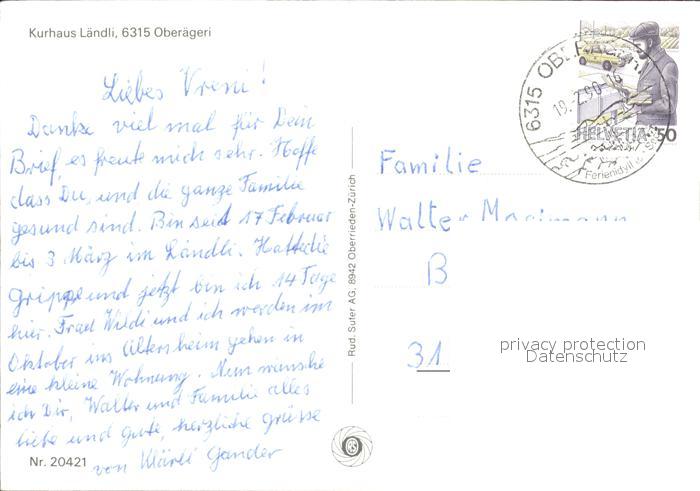 Kurhaus Ländli, 6315 Oberägeri
Liebes Vreni!
Danke viel mal für Dein
Brief, es freute mich sehr. Hoffe
dass Du, und die ganze Familie
gesund sind. Bin seid 17 Februar
bis 3 März im Ländli. Hatte die
Grippe und jetzt bin ich 14 Tage
hier. Frau Wildi und ich werden im
Oktober ins Altersheim gehen in
eine kleine Wohnung. Nun wünsche
ich Dir, Walter und Familie alles
liebe und gute, herzliche grüsse
von Klärli Gander
Nr. 20421
Rud. Suter AG, 8942 Oberrieden-Zürich
6315 OBERÄGERI
19.2.90-16
Ferienidyll
HELVETIA 50
Familie
Walter
B
31
privacy protection
Datenschutz